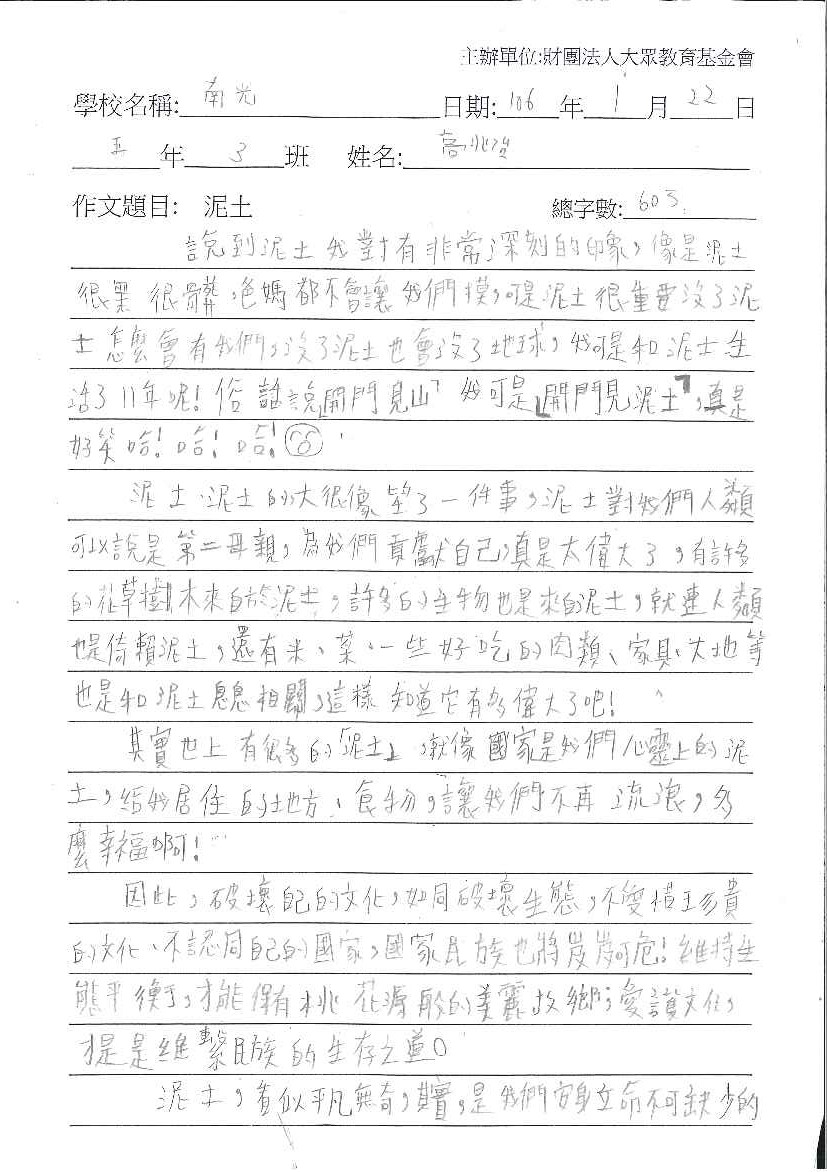 主辦單位:財團法人大眾教育基金會
學校名稱: 南光 日期: 106 年 1 月 22 日
五 年 3 班 姓名: 高兆
作文題目: 泥土 總字數: 603
說到泥土我對有非常深刻的印象,像是泥土
很黑很髒爸媽都不會讓我們摸,可是泥土很重要沒了泥
土怎麼會有我們,沒了泥土也會沒了地球,我可是和泥土生
活了11年呢!俗話說「開門見山」我可是「開門見泥土」,真是
好笑哈!哈!哈!
泥土、泥土的大很像望了一件事,泥土對我們人類
可以說是第二母親,為我們貢獻自己,真是太偉大了,有許多
的花草樹木來自於泥土,許多的生物也是來自泥土,就連人類
也是倚賴泥土,還有米、菜、一些好吃的肉類、家具、大地等
也是和泥土息息相關,這樣知道它有多偉大了吧!
其實世上有很多的「泥土」,就像國家是我們心靈上的泥
土,給我居住的地方、食物,讓我們不再流浪,多
麼幸福啊!
因此,破壞自己的文化,如同破壞生態,不愛惜珍貴
的文化、不認同自己的國家,國家民族也將岌岌可危!維持生
態平衡,才能保有桃花源般的美麗故鄉;愛護文化,
才是是維繫民族的生存之道。
泥土,看似平凡無奇,其實,是我們安身立命不可缺少的